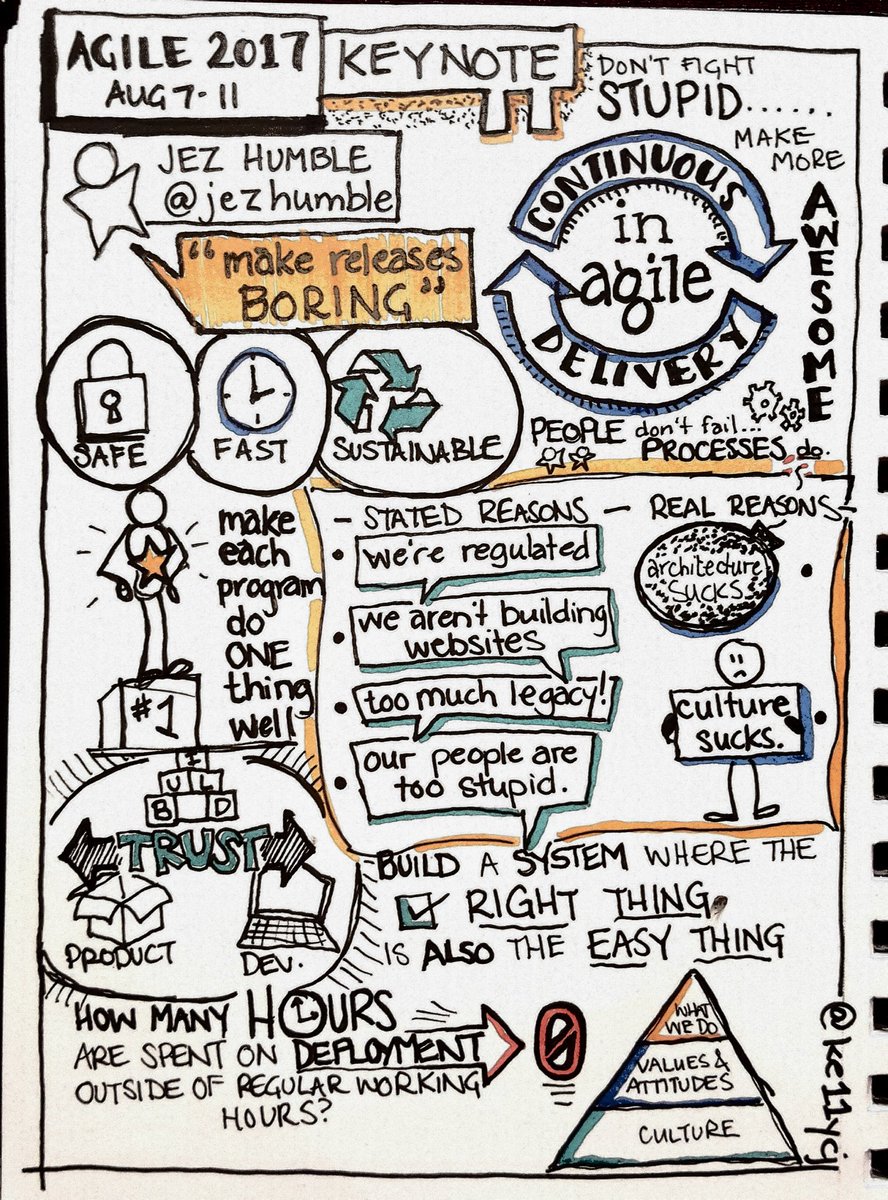 AGILE 2017
AUG 7-11
KEYNOTE
DON'T FIGHT
STUPID......
MAKE
MORE
AWESOME
JEZ HUMBLE
@jezhumble
"make releases
BORING"
CONTINUOUS
in
agile
DELIVERY
SAFE
FAST
SUSTAINABLE
PEOPLE don't fail...
PROCESSES do.
make
each
program
do
ONE
thing
well
#1
- STATED REASONS -
we're regulated
we aren't building
websites
too much legacy!
our people are
too stupid.
REAL REASONS-
architecture
sucks.
culture
sucks.
BUILD
TRUST
PRODUCT
DEV.
BUILD A SYSTEM WHERE THE
RIGHT THING
IS ALSO THE EASY THING
HOW MANY HOURS
ARE SPENT ON DEPLOYMENT
OUTSIDE OF REGULAR WORKING
HOURS?
0
WHAT
WE DO
VALUES &
ATTITUDES
CULTURE
@ke11ycj